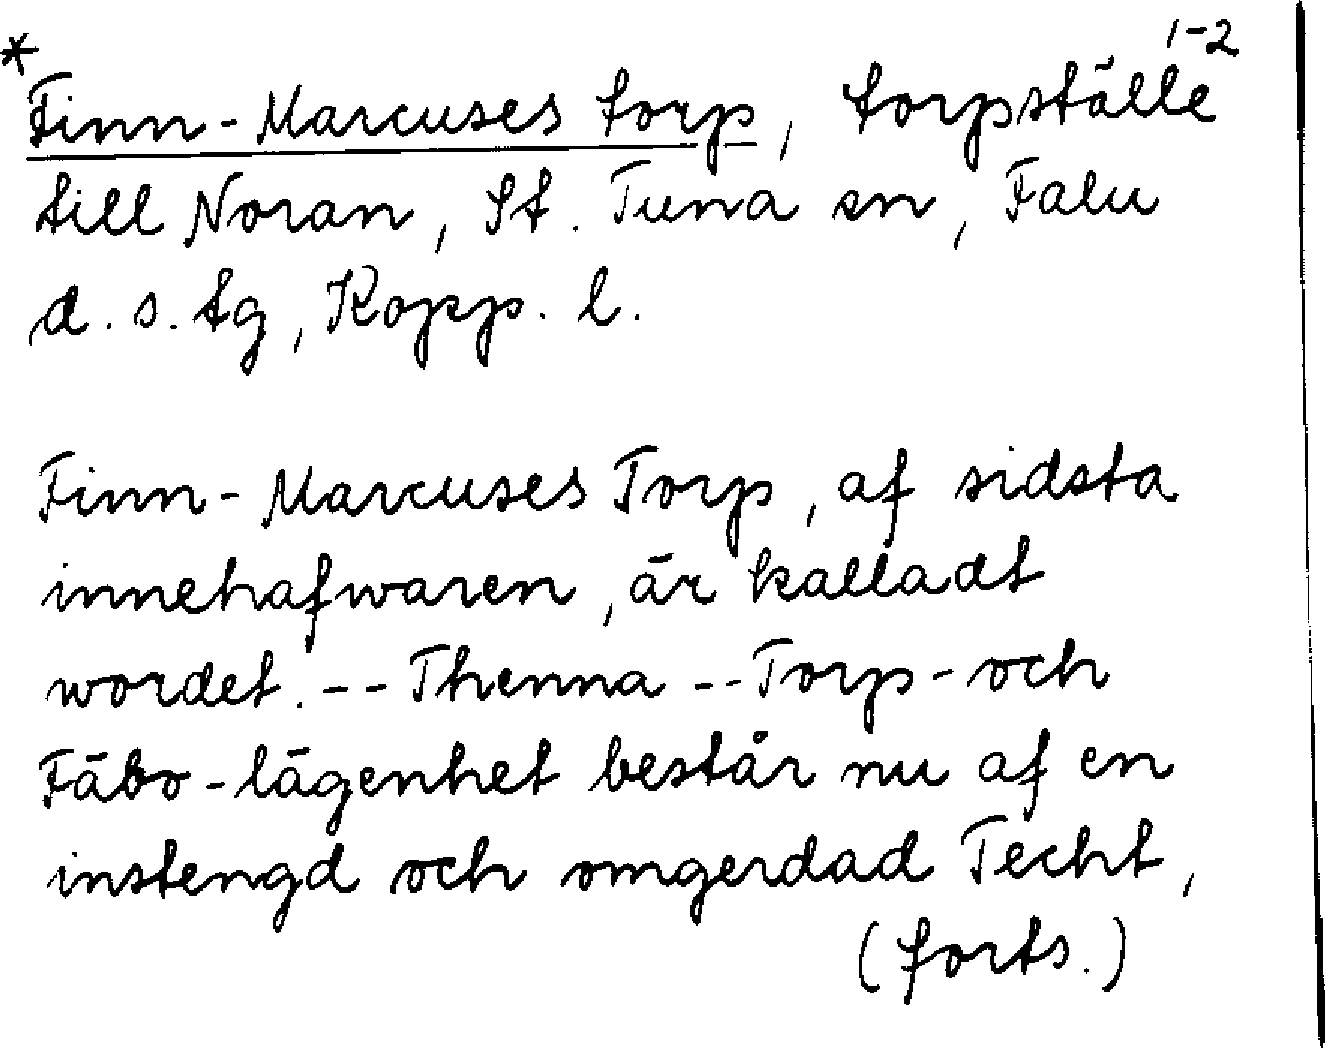 1-2
* Finn-Marcuses torp, torpställe
till Noran, St. Tuna sn, Falu
d. s. tg, Kopp. l.
Finn-Marcuses Torp, af sidsta
innehafwaren, är kalladt
wordet. -- Thenna -- Torp-och
Fäbo-lägenhet består nu af en
instengd och omgerdad Techt,
(forts.)